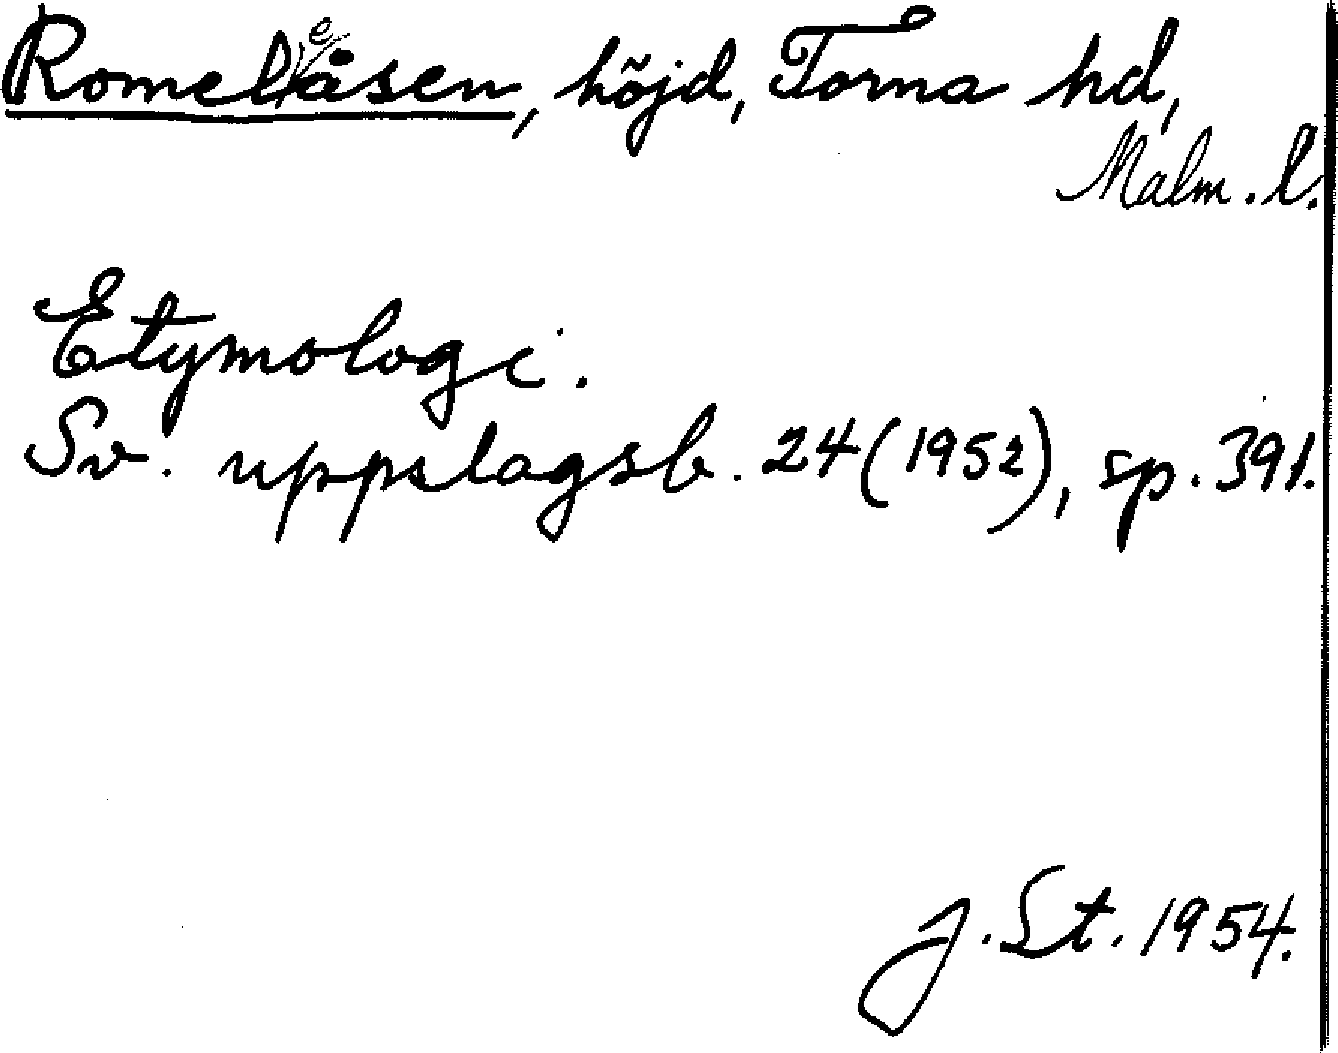 Romeleåsen, höjd, Torna hd,
Malm. l.
Etymologi.
Sv. uppslagsb. 24 (1952), sp. 391.
J. St. 1954.